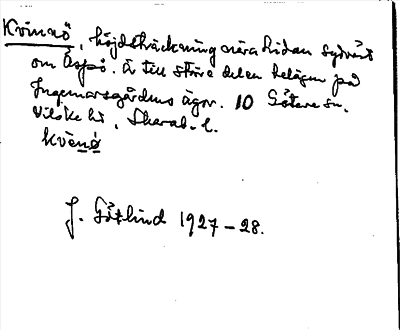 Kvinnö, höjdsträckning nära Lidan sydväst
om Aspö. Är till större delen belägen på
Ingemarsgårdens ägor. 10 Götene sn.
Vilske hd, Skarab. l.
kvènö
J. Götlind 1927-28.